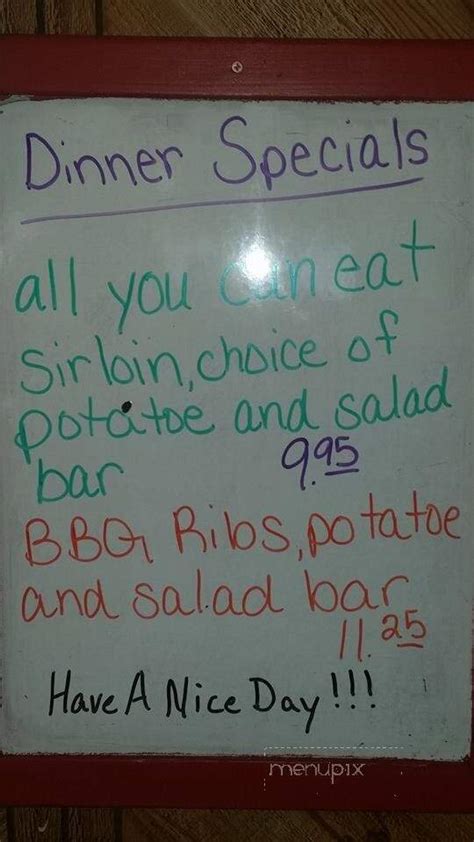 Dinner Specials
all you can eat
Sirloin, choice of
potatoe and salad
bar 9.95
BBQ Ribs, potatoe
and salad bar
11.25
Have A Nice Day!!!
menupix